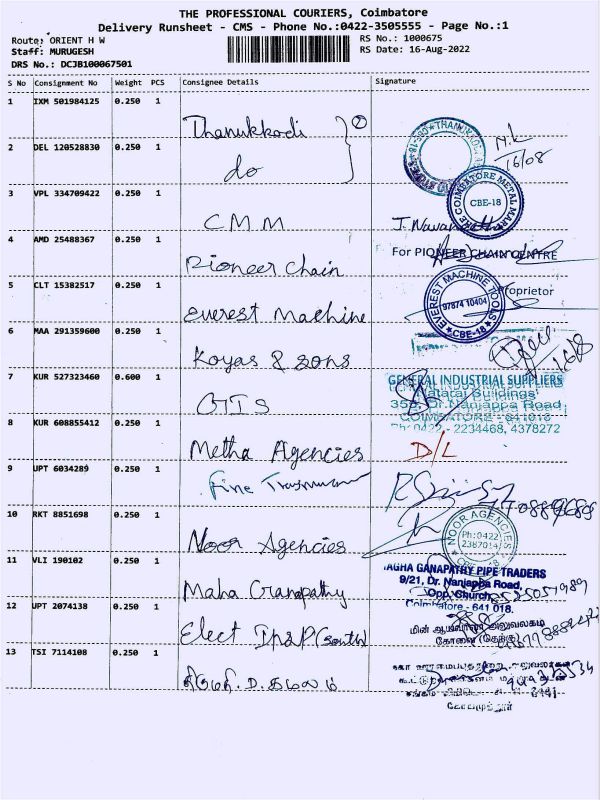 THE PROFESSIONAL COURIERS, Coimbatore
Delivery Runsheet - CMS - Phone No.:0422-3505555 - Page No.:1
Route: ORIENT H W
RS No.: 1000675
Staff: MURUGESH
RS Date: 16-Aug-2022
DRS No.: DCJB100067501
S No Consignment No Weight PCS Consignee Details Signature
1 IXM 501984125 0.250 1 Thanukkodi
2 DEL 120528830 0.250 1 do
16/08
3 VPL 334709422 0.250 1 CMM
THE COIMBATORE METAL MART CBE-18
4 AMD 25488367 0.250 1 Pioneer Chain
For PIONEER CHAIN CENTRE
Proprietor
5 CLT 15382517 0.250 1 Everest Machine
EVEREST MACHINE TOOLS 97874 10404 CBE-18
6 MAA 291359600 0.250 1 Koyas & Sons
16/8
7 KUR 527323460 0.600 1 GIIS
GENERAL INDUSTRIAL SUPPLIERS
Nataraj Buildings
Dr. Nanjappa Road
COIMBATORE - 641018
Ph: 0422 - 2234468, 4378272
8 KUR 608855412 0.250 1 Metha Agencies
D/L
9 UPT 6034289 0.250 1 Fine
10 RKT 8851698 0.250 1 Noor Agencies
NOOR AGENCIES Ph:0422 2387014
11 VLI 190102 0.250 1 Maha Ganapathy
MAGHA GANAPATHY PIPE TRADERS
9/21, Dr. Nanjappa Road,
Opp. Church,
Coimbatore - 641 018.
12 UPT 2074138 0.250 1 Elect Insp (South)
கோவை (தெற்கு)
13 TSI 7114108 0.250 1 திருமதி. D. கமலம்
கோயமுத்தூர்